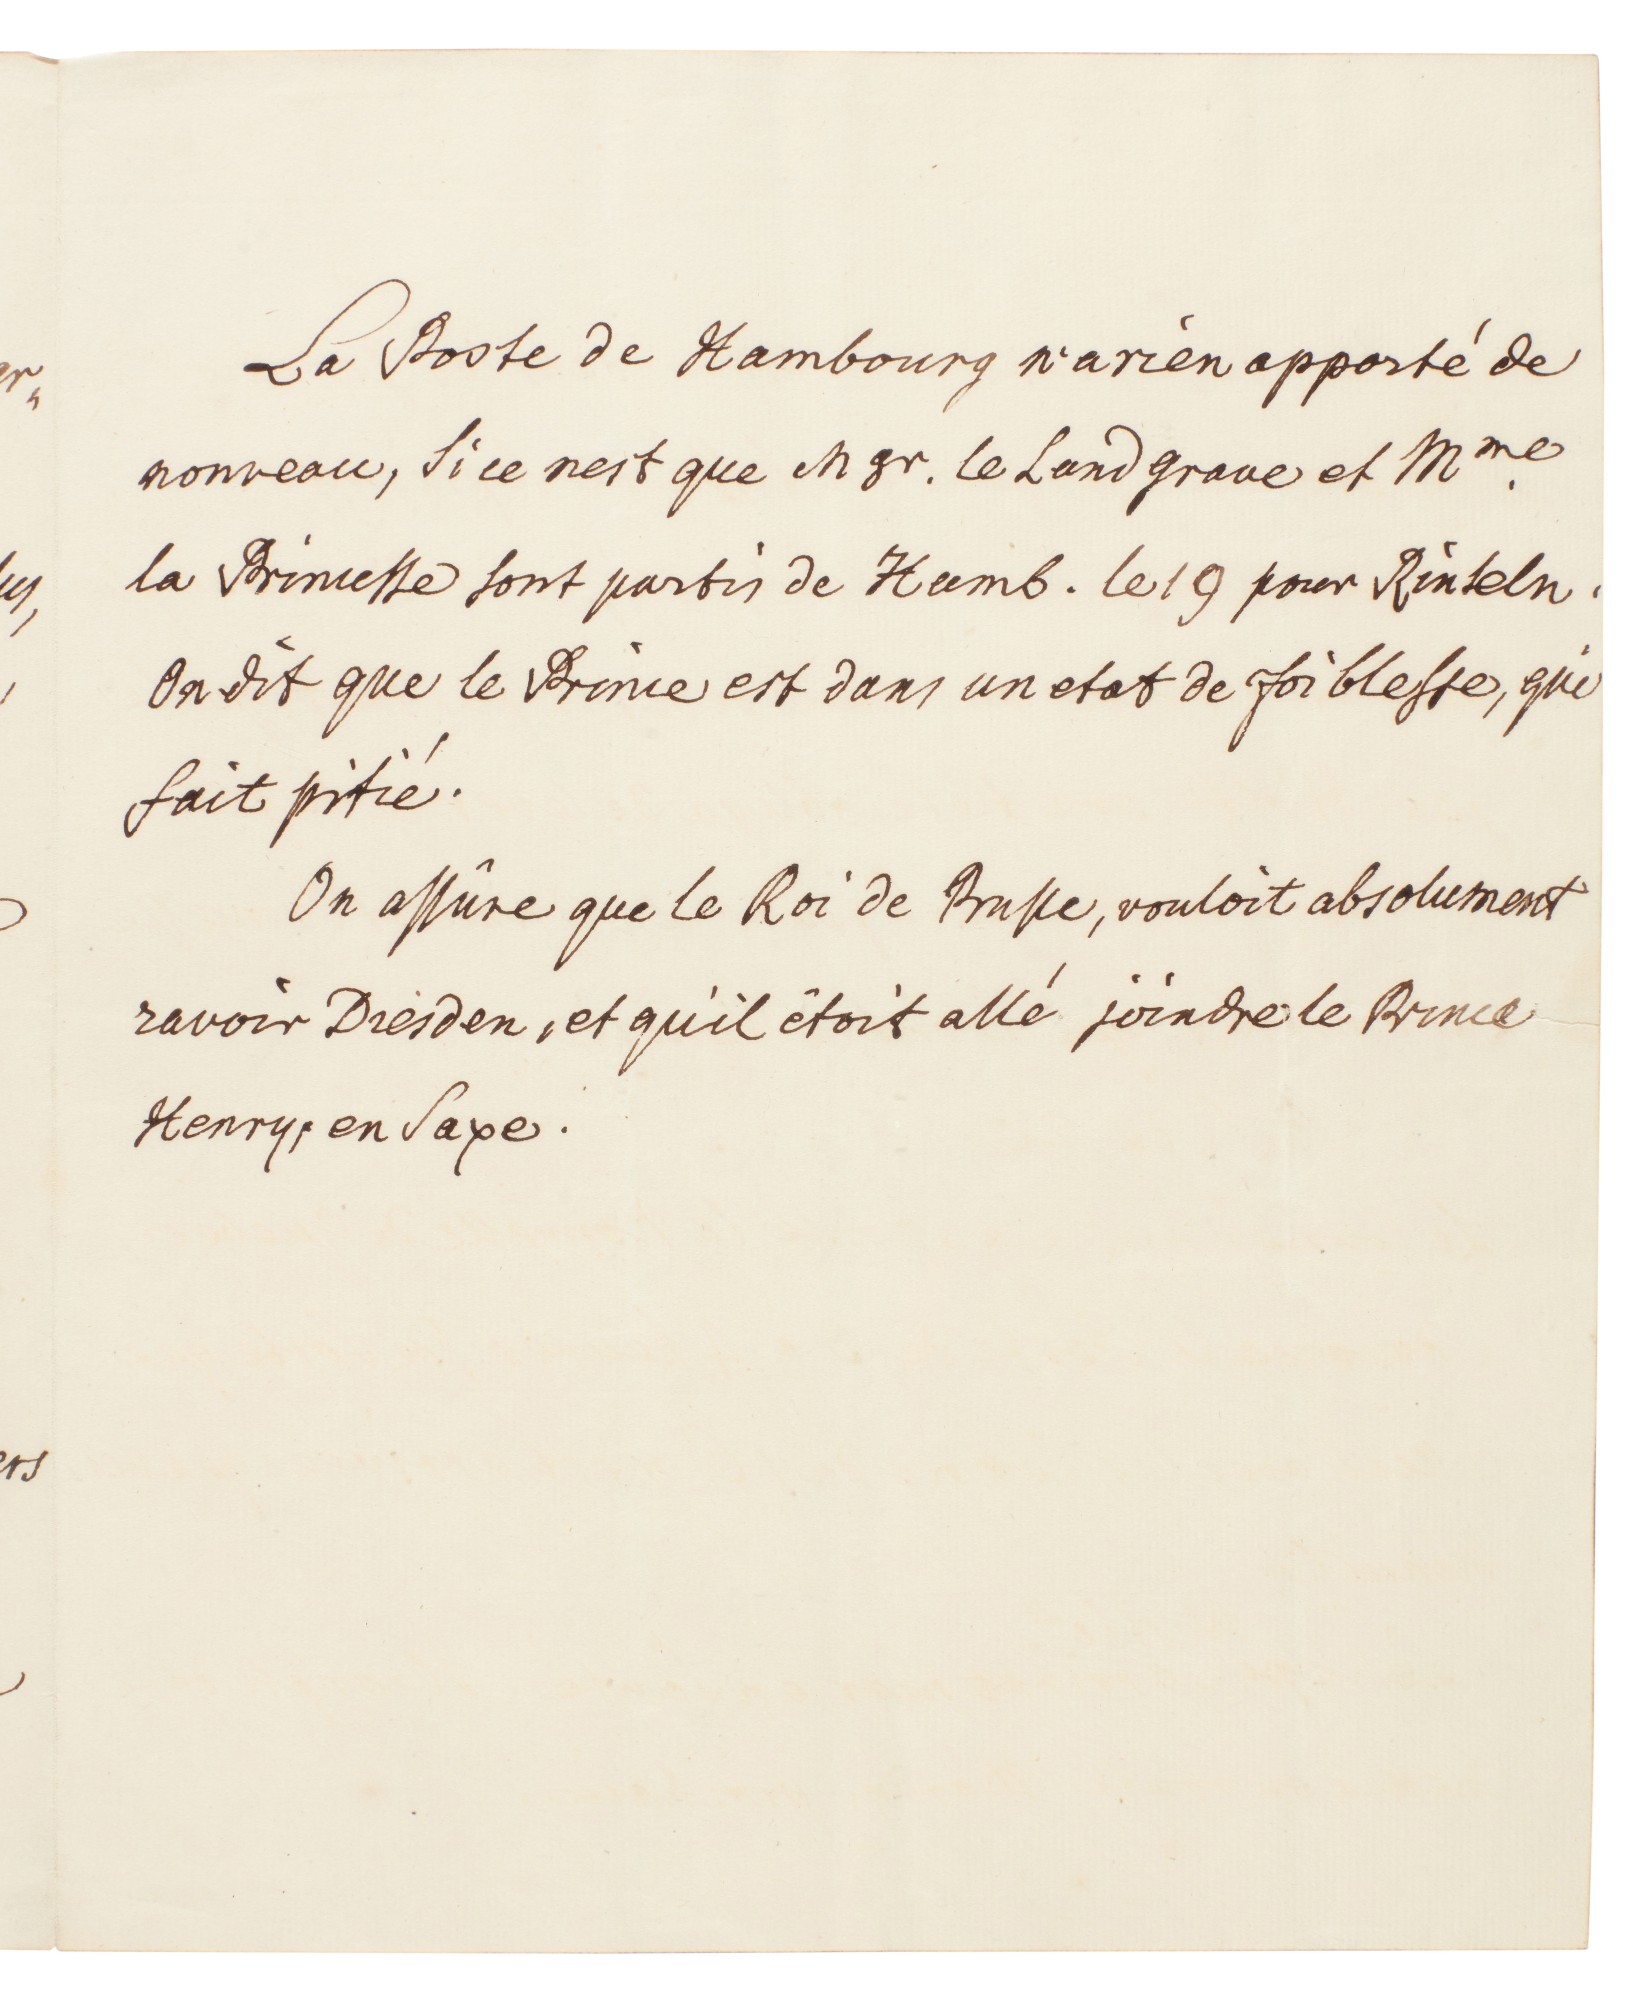 La Poste de Hambourg n'a rien apporté de
nouveau, si ce n'est que Mgr. le Landgrave et Mme.
la Princesse sont partis de Hamb. le 19 pour Rinteln.
On dit que le Prince est dans un etat de foiblesse, qui
fait pitié.
On assûre que le Roi de Prusse, vouloit absolument
ravoir Dresden, et qu'il êtoit allé joindre le Prince
Henry, en Saxe.